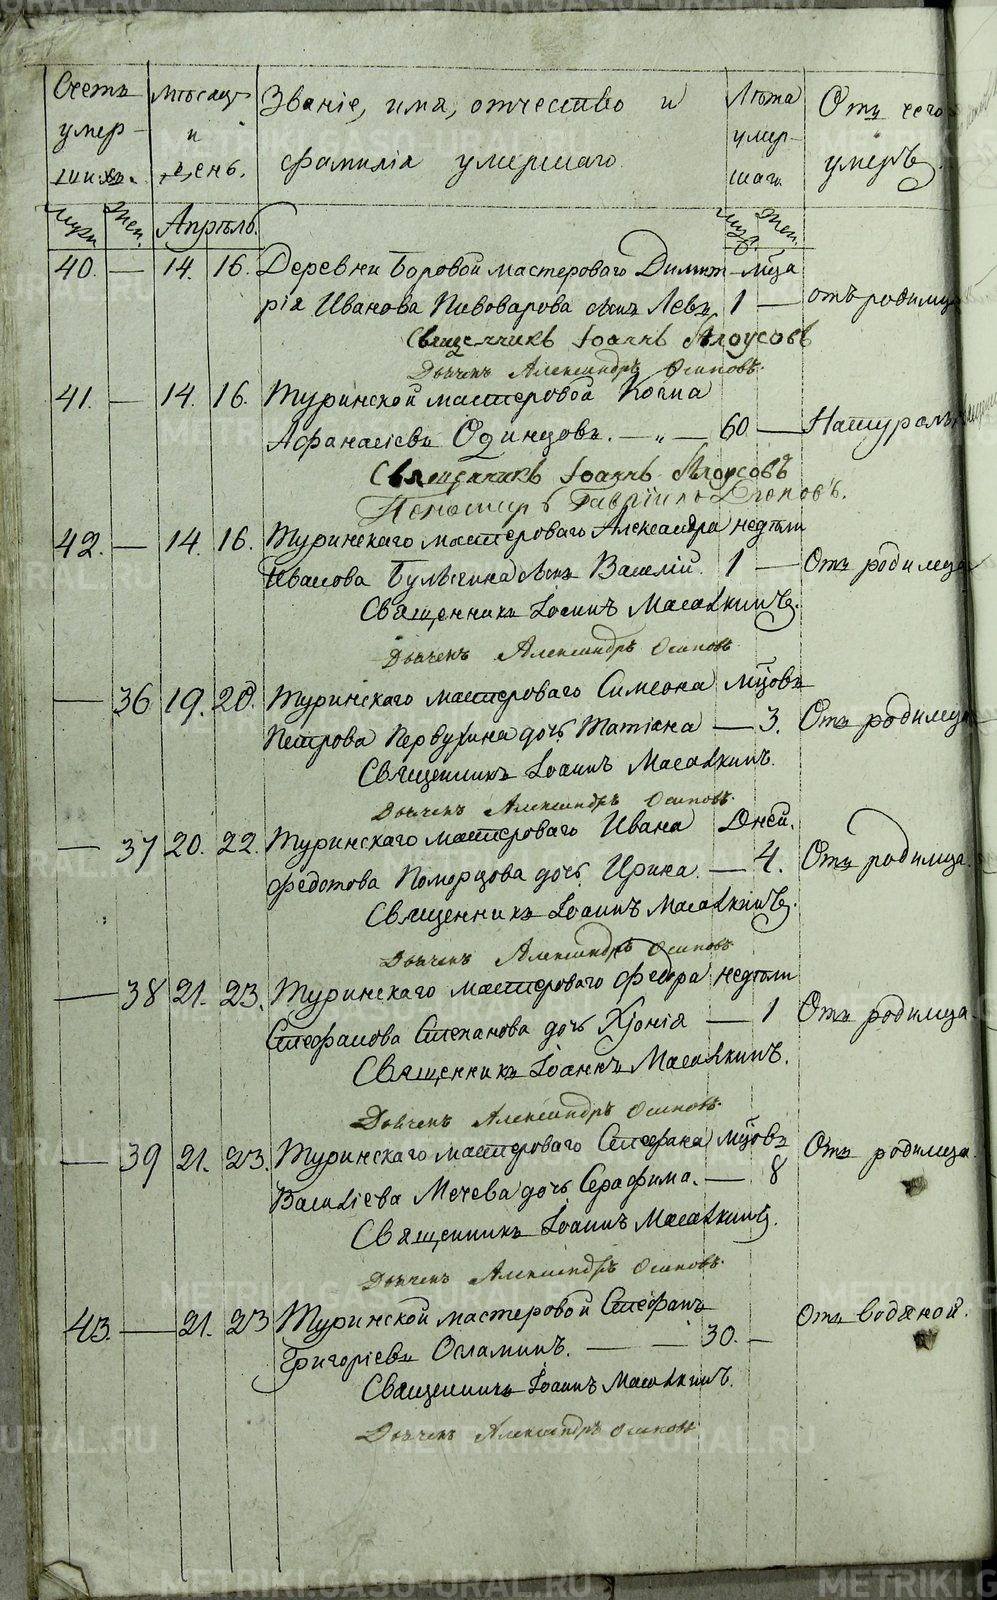 Счетъ умер- шихъ.
Мѣсяцъ и день.
Званіе, имя, отчество и фамилія умершаго
Лѣта умер- шаго
Отъ чего умеръ.
Муж. Жен. Апрѣль. Муж. Жен.
40. — 14. 16. Деревни Боровой мастероваго Димит- мца
рія Иванова Пивоварова сынъ Левъ 1 — отъ родимца
Священникъ Іоаннъ
Дьячекъ Александръ Осиповъ.
41. — 14. 16. Туринской мастеровой Косма
Афанасіевъ Одинцовъ. — „ — 60 — Натурал
Священникъ Іоаннъ
Гавріилъ
42. — 14. 16. Туринскаго мастероваго Александра недѣли
Иванова сынъ Василій. 1 — Отъ родимца
Священникъ Іоаннъ Масалкинъ.
Дьячекъ Александръ Осиповъ
— 36 19. 20. Туринскаго мастероваго Симеона мцовъ
Петрова Первухина дочь Татіана — 3. Отъ родимца
Священникъ Іоаннъ Масалкинъ.
Дьячекъ Александръ Осиповъ.
— 37 20. 22. Туринскаго мастероваго Ивана Дней.
Федотова Поморцова дочь Ирина. — 4. Отъ родимца.
Священникъ Іоаннъ Масалкинъ.
Дьячекъ Александръ Осиповъ
— 38 21. 23. Туринскаго мастероваго Федора недѣли
Стефанова Степанова дочь Хіонія — 1 Отъ родимца.
Священникъ Іоаннъ Масалкинъ.
Дьячекъ Александръ Осиповъ.
— 39 21. 23. Туринскаго мастероваго Стефана мцовъ
Василіева Мечева дочь Серафима. — 8 Отъ родимца.
Священникъ Іоаннъ Масалкинъ.
Дьячекъ Александръ Осиповъ.
43. — 21. 23 Туринской мастеровой Стефанъ
Григоріевъ Осламинъ. — — 30. — Отъ водяной.
Священникъ Іоаннъ Масалкинъ.
Дьячекъ Александръ Осиповъ
METRIKI.GASO-URAL.RU